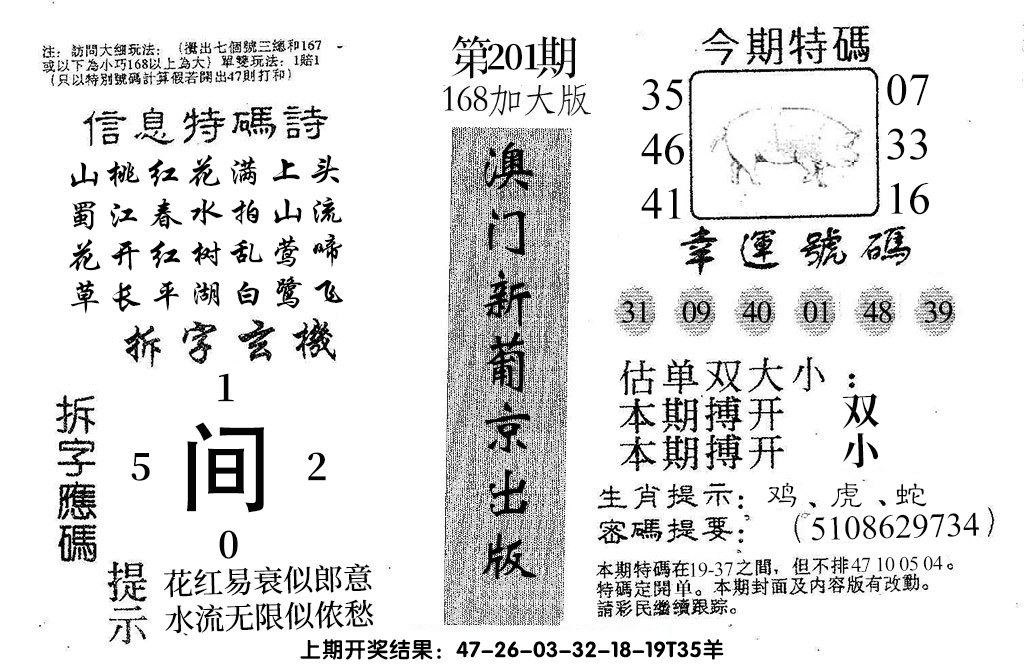 注：訪問大细玩法：（攪出七個號三總和167
或以下為小巧168以上為大）單雙玩法：1賠1
（只以特別號碼計算假若開出47則打和）
信息特碼詩
山桃红花满上头
蜀江春水拍山流
花开红树乱莺啼
草长平湖白鹭飞
拆字玄機
拆字應碼
1
5 间 2
0
提示
花红易衰似郎意
水流无限似侬愁
第201期
168加大版
澳门新葡京出版
今期特碼
35 07
46 33
41 16
幸運號碼
31 09 40 01 48 39
估单双大小：
本期搏开 双
本期搏开 小
生肖提示：鸡、虎、蛇
密碼提要：（5108629734）
本期特碼在19-37之間，但不排47 10 05 04。
特碼定開单。本期封面及内容版有改動。
請彩民繼續跟踪。
上期开奖结果：47-26-03-32-18-19T35羊